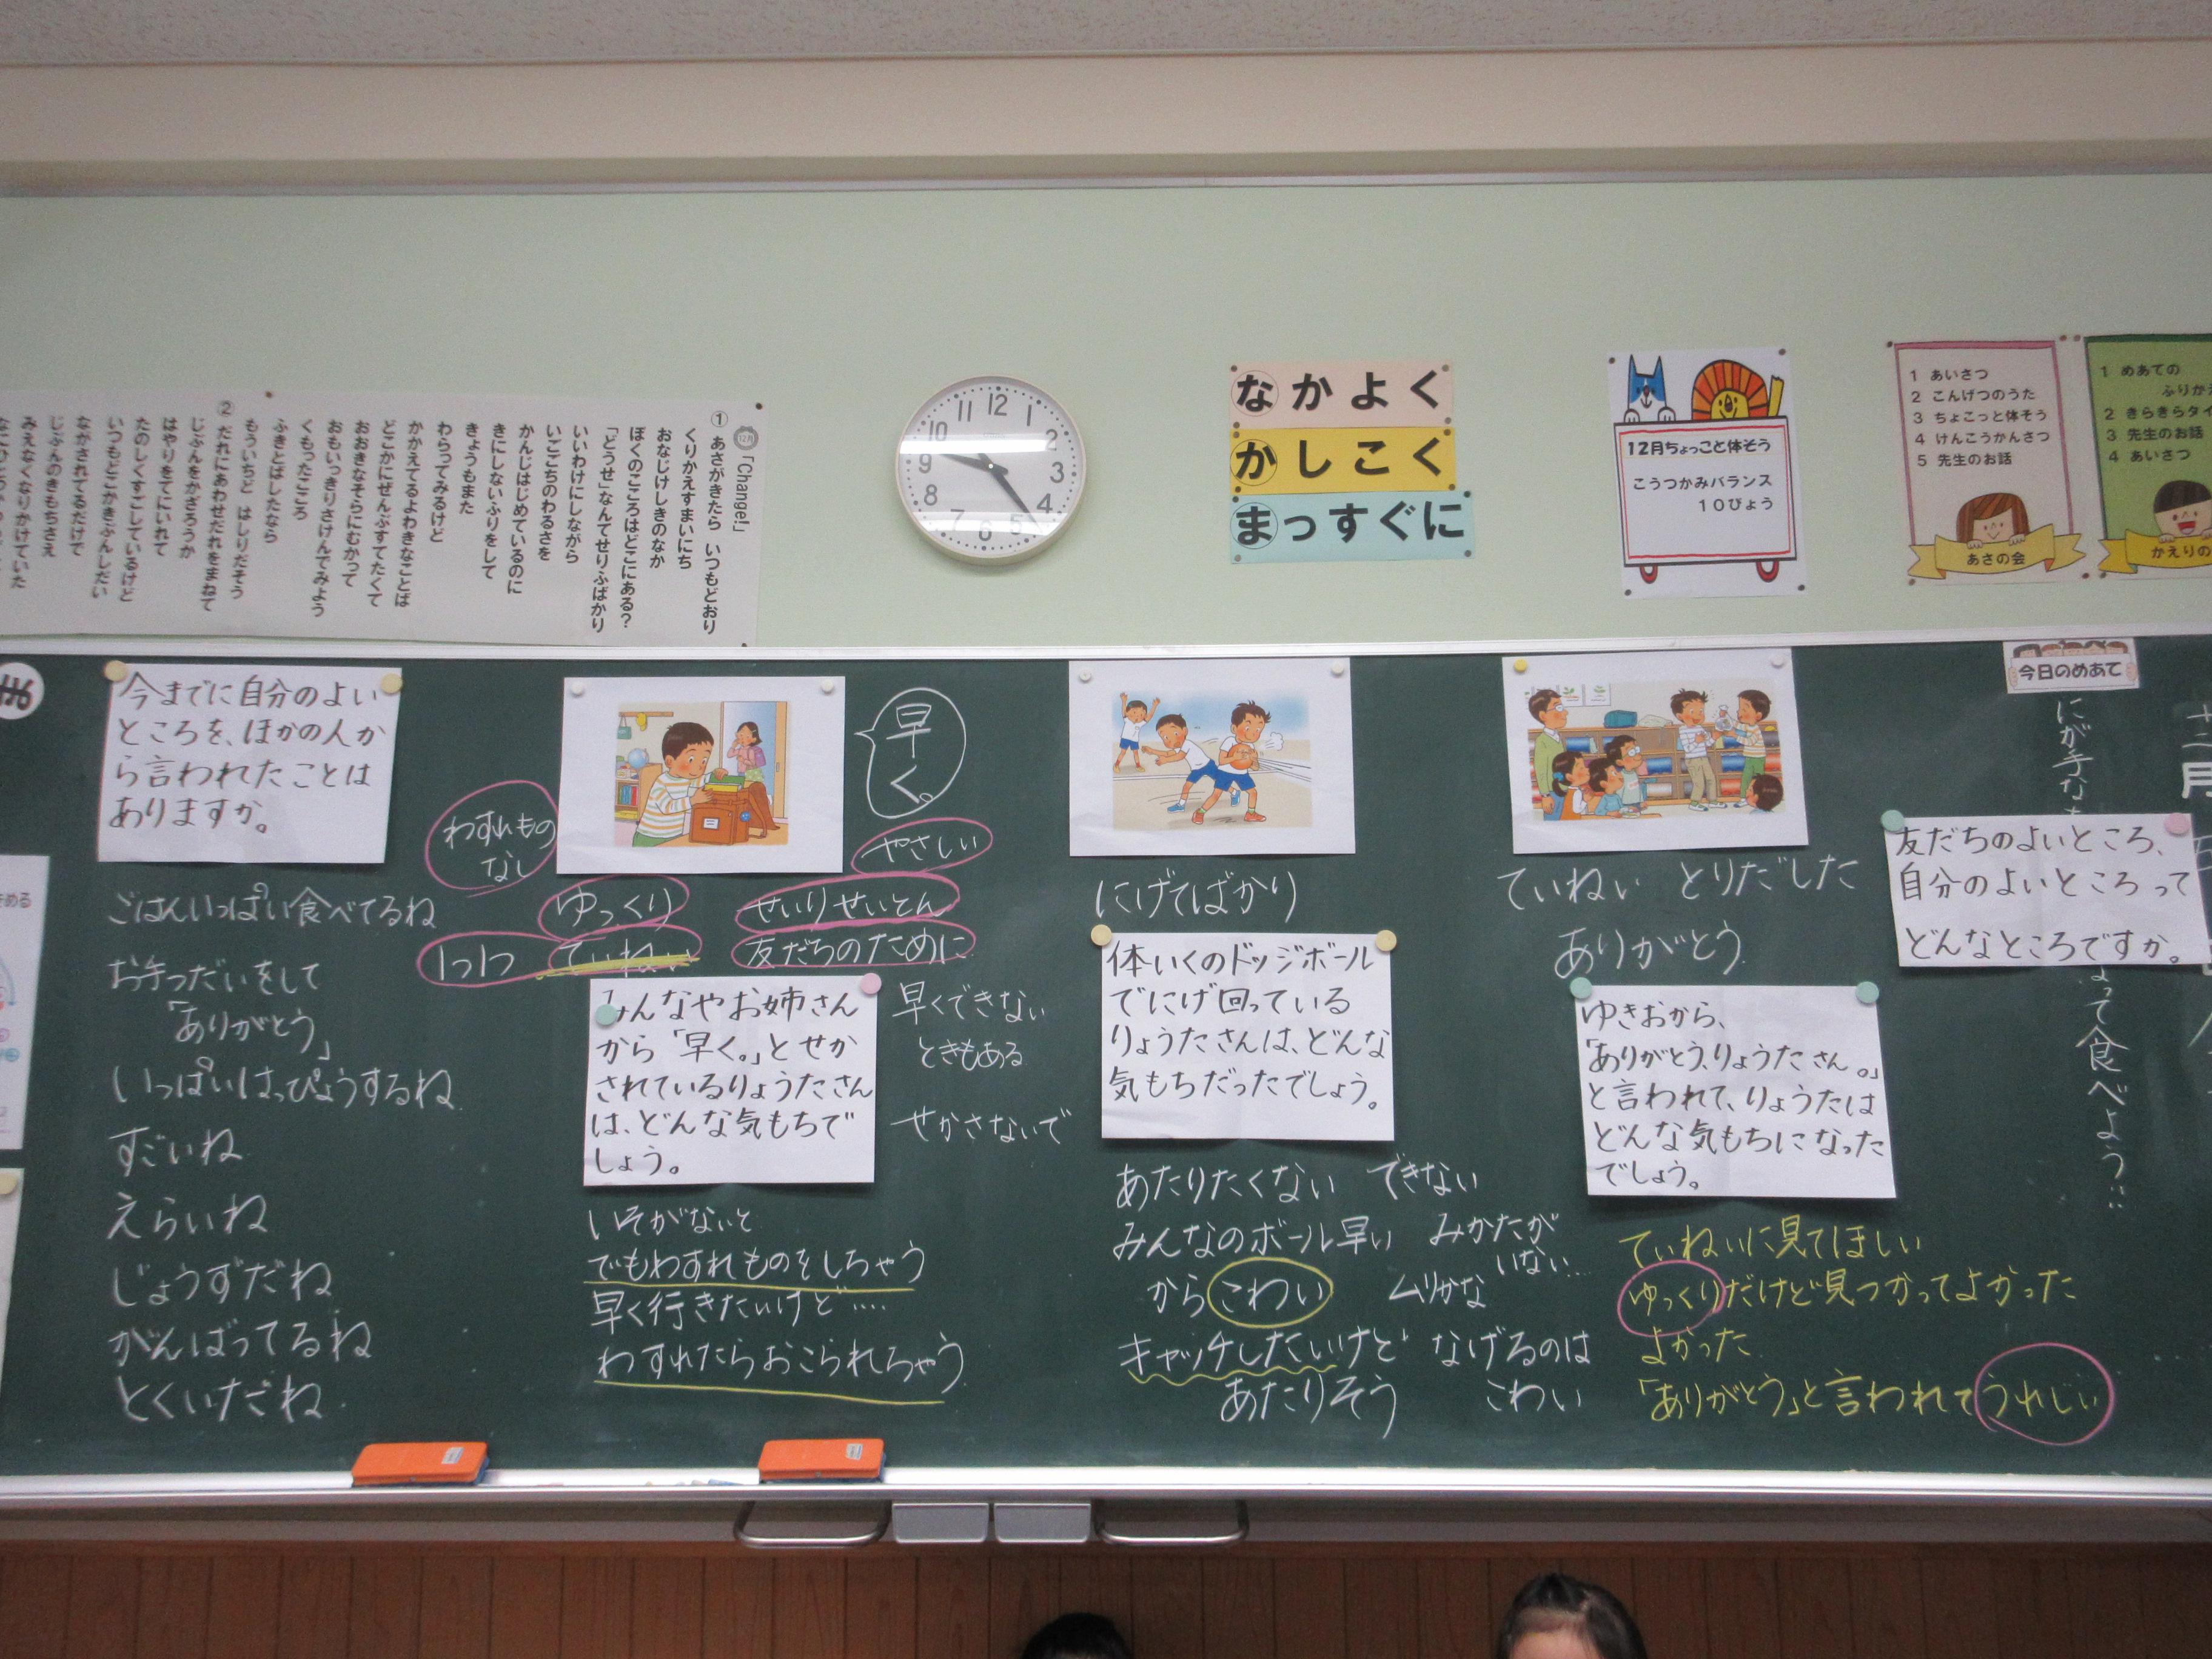 12月
「Change!」
① あさがきたら いつもどおり
くりかえすまいにち
おなじけしきのなか
ぼくのこころはどこにある?
「どうせ」なんてせりふばかり
いいわけにしながら
いごこちのわるさを
かんじはじめているのに
きにしないふりをして
きょうもまた
わらってみるけど
かかえてるよわきなことば
どこかにぜんぶすてたくて
おおきなそらにむかって
おもいっきりさけんでみよう
くもったこころ
ふきとばしたなら
もういちど はしりだそう
② だれにあわせだれをまねて
じぶんをかざろうか
はやりをてにいれて
たのしくすごしているけど
いつもどこかきぶんしだい
ながされてるだけで
じぶんのきもちさえ
みえなくなりかけていた
12
1
2
3
4
5
6
7
8
9
10
11
なかよく
かしこく
まっすぐに
12月ちょっこと体そう
こうつかみバランス
10びょう
1 あいさつ
2 こんげつのうた
3 ちょこっと体そう
4 けんこうかんさつ
5 先生のお話
あさの会
1 めあての
ふりか
2 きらきらタイ
3 先生のお話
4 あいさつ
かえりの
今日のめあて
にが手な
って食べよう
月
友だちのよいところ、
自分のよいところって
どんなところですか。
ていねい とりだした
ありがとう
ゆきおから、
「ありがとう、りょうたさん。」
と言われて、りょうたは
どんな気もちになった
でしょう。
ていねいに見てほしい
ゆっくりだけど見つかってよかった
よかった
「ありがとう」と言われてうれしい
にげてばかり
体いくのドッジボール
でにげ回っている
りょうたさんは、どんな
気もちだったでしょう。
あたりたくない
みんなのボール早い
からこわい
キャッチしたいけど
あたりそう
できない
みかたが
いない…
ムリかな
なげるのは
こわい
早く。
やさしい
わすれもの
なし
ゆっくり
せいりせいとん
1つ1つ ていねい
友だちのために
みんなやお姉さん
から「早く。」とせか
されているりょうたさん
は、どんな気もちで
しょう。
早くできない
ときもある
せかさないで
いそがないと
でもわすれものをしちゃう
早く行きたいけど‥‥
わすれたらおこられちゃう
今までに自分のよい
ところを、ほかの人か
ら言われたことは
ありますか。
ごはんいっぱい食べてるね
お手つだいをして
「ありがとう」
いっぱいはっぴょうするね
すごいね
えらいね
じょうずだね
がんばってるね
とくいだね
ま
める